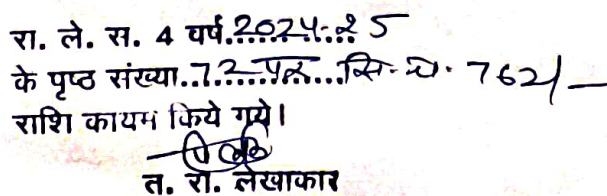 रा. ले. स. 4 वर्ष.2024-25
के पृष्ठ संख्या..72 पर...सि. च. 762/-
राशि कायम किये गये।
त. रा. लेखाकार